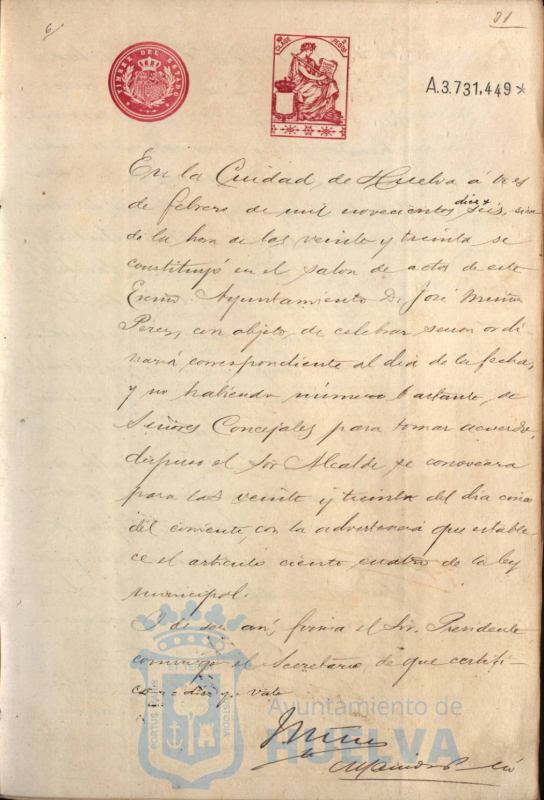 6
31
TIMBRE DEL ESTADO
A.3.731,449*
En la Ciudad, de Huelva á tres
de febrero de mil novecientos diez y seis, sien
do la hora de las veinte y treinta se
constituyó en el salon de actos de este
Excmo Ayuntamiento D. José Muñoz
Perez, con objeto, de celebrar sesion ordi
naria correspondiente al dia de la fecha,
y no habiendo número bastante, de
Señores Concejales para tomar acuerdo,
dispuso el Sor Alcalde se convocara
para las veinte y treinta del dia cinco
del corriente, con la advertencia que estable
ce el articulo ciento cuatro de la ley
municipal.
Y de ser asi, firma el Sor. Presidente
conmigo el Secretario, de que certifi-
co = diez y = vale
PORTUS MARIS
CUSTODIA
Ayuntamiento de
HUELVA
J. Muñoz